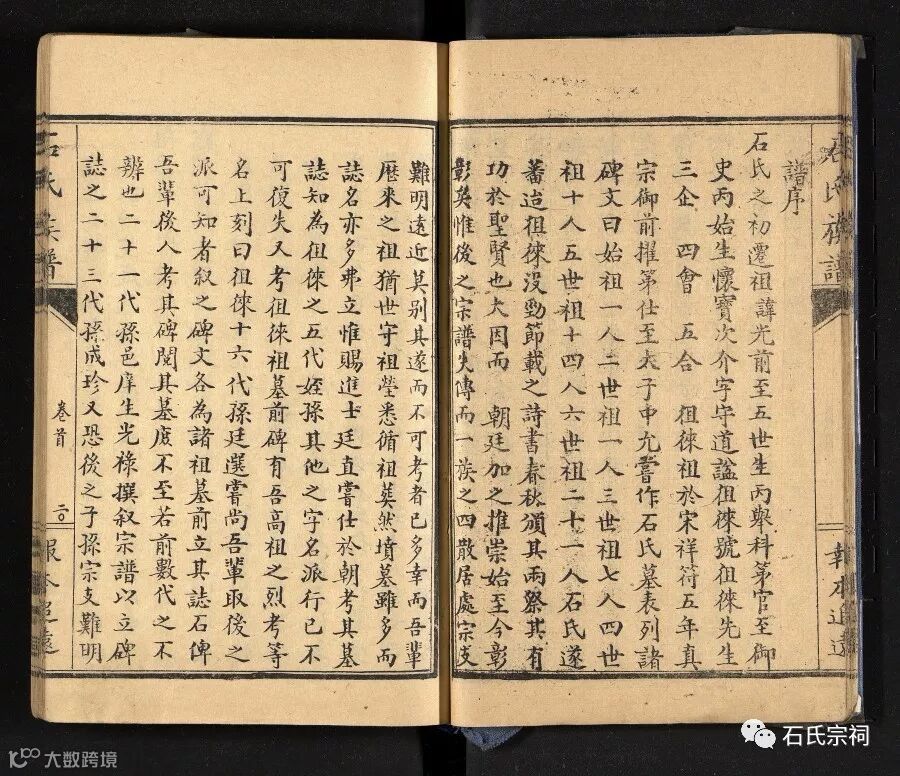 譜序
石氏之初遷祖諱光前至五世生丙舉科第官至御
史丙始生懷寶次介字守道諡徂徠號徂徠先生
三企 四會 五合 徂徠祖於宋祥符五年真
宗御前擢第仕至太子中允嘗作石氏墓表列諸
碑文曰始祖一人二世祖一人三世祖七人四世
祖十八五世祖十四人六世祖二十一人石氏遂
蕃迨徂徠没勁節載之詩書春秋頒其兩祭其有
功於聖賢也大因而 朝廷加之推崇始至今彰
彰矣惟後之宗譜失傳而一族之四散居處宗支
難明遠近莫别其遂而不可考者已多幸而吾輩
歷來之祖猶世守祖塋悉循祖葬然墳墓雖多而
誌名亦多弗立惟賜進士廷直嘗仕於朝考其墓
誌知為徂徠之五代姪孫其他之字名派行已不
可復失又考徂徠祖墓前碑有吾高祖之烈考等
名上刻曰徂徠十六代孫廷選嘗尚吾輩取後之
派可知者叙之碑文各為諸祖墓前立其誌石俾
吾輩後人考其碑閲其墓庶不至若前數代之不
辨也二十一代孫邑庠生光祿撰叙宗譜以立碑
誌之二十三代孫成珍又恐後之子孫宗支難明
石氏族譜
卷首
二〇
報本追遠
石氏族譜
報本追遠
石氏宗祠
大数跨境